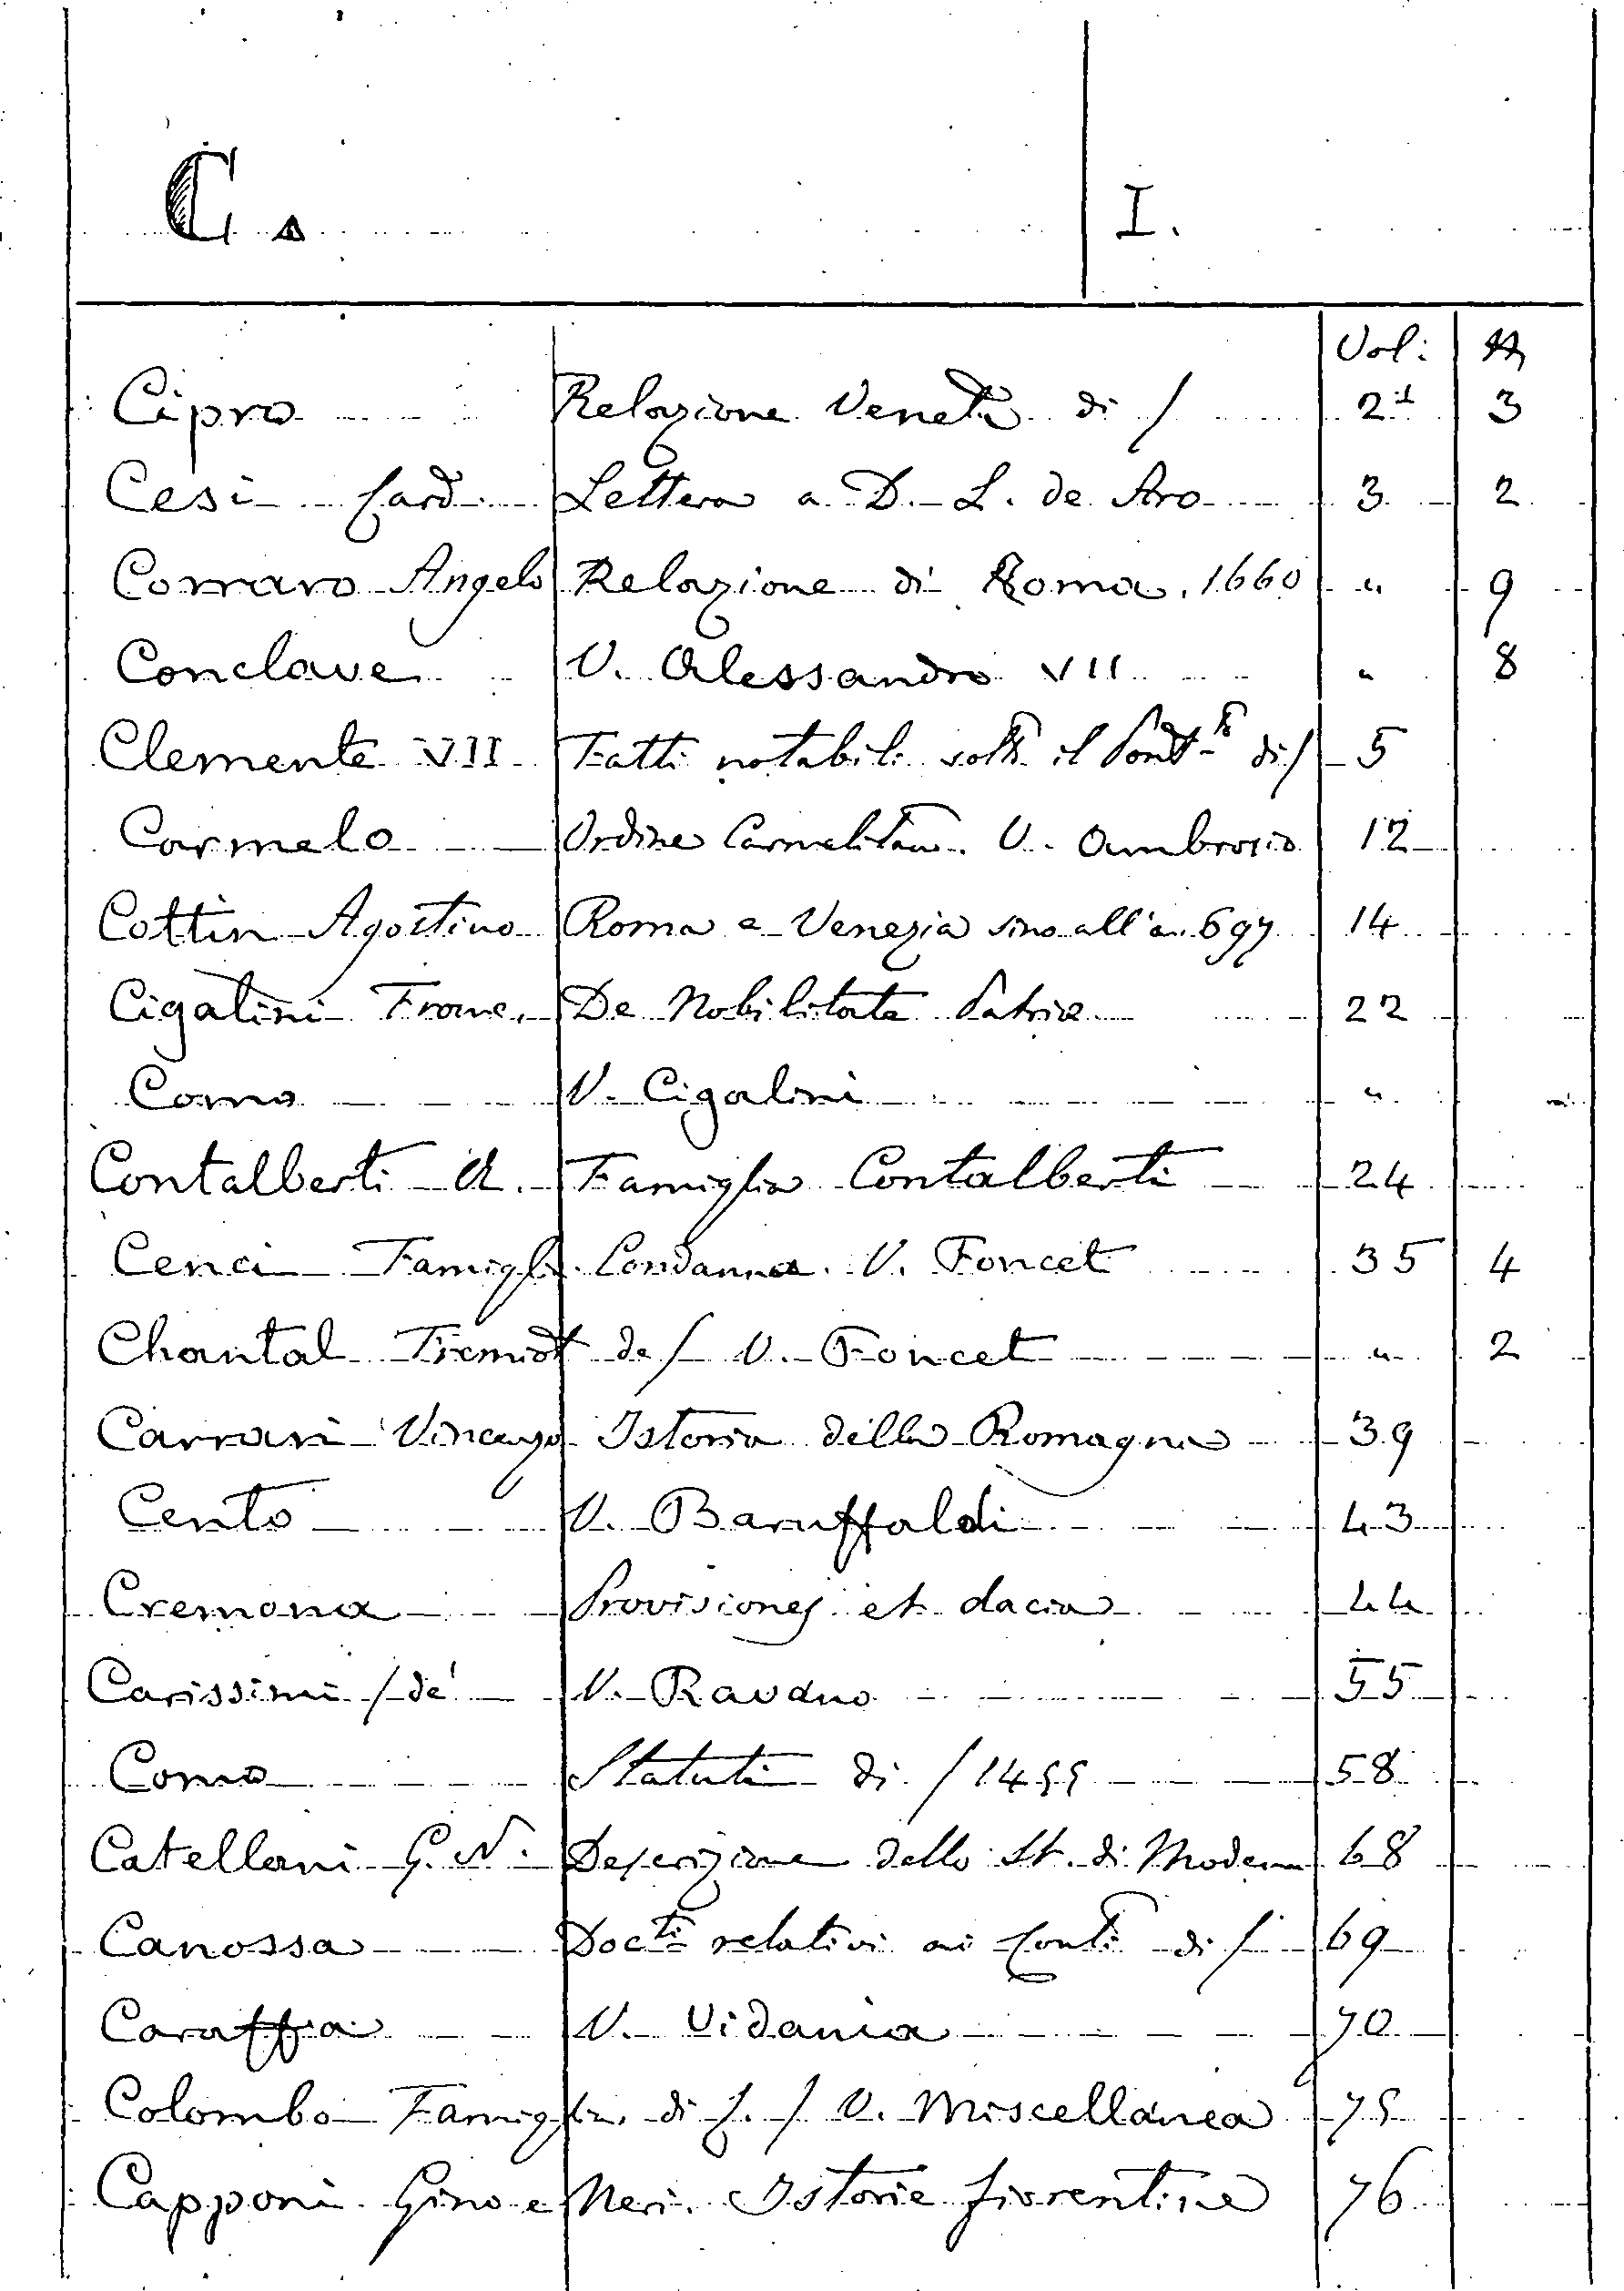 C. I.
Vol: №
Cipro Relazione Veneta di / 2¹ 3
Cesi Card. Lettera a D. L. de Aro 3 2
Corraro Angelo Relazione di Roma. 1660 " 9
Conclave V. Alessandro VII " 8
Clemente VII Fatti notabili sotto il Pont.to di / 5
Carmelo Ordine Carmelitano. V. Ambrosio 12
Cottin Agostino Roma e Venezia sino all'a. 697 14
Cigalini Franc. De Nobilitate Patriae 22
Como V. Cigalini "
Contalberti A. Famiglia Contalberti 24
Cenci Famigli. Condanna. V. Foncet 35 4
Chantal de / V. Foncet " 2
Carrari Vincenzo Istoria della Romagna 39
Cento V. Baruffaldi 43
Cremona Provisiones et dacia 44
Carissimi / de' V. 55
Como Statuti di / 1455 58
Catellani G. N. Descrizione dello St. di Modena 68
Canossa Docti relativi ai Conti di / 69
Caraffa V. Vidania 70
Colombo Famiglia. di C. / V. Miscellanea 75
Capponi Gino e Neri. Istorie fiorentine 76